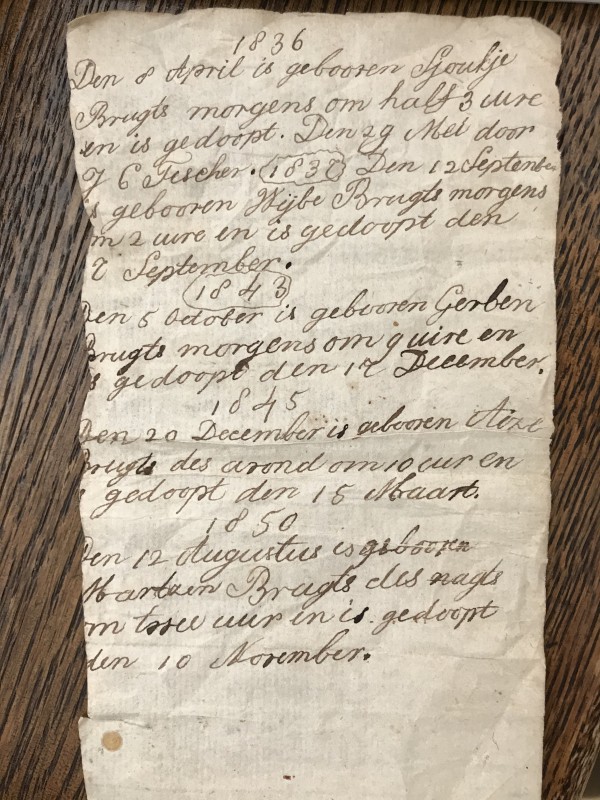 1836
Den 8 April is gebooren Sjoukje
Brugts morgens om half 3 uure
en is gedoopt. Den 29 Mei door
6 Tescher. 1837 Den 12 September
is gebooren Wijbe Brugts morgens
om 2 uure en is gedoopt den
7 September.
1843
Den 5 October is gebooren Gerben
Brugts morgens om 9 uire en
is gedoopt den 17 December.
1845
Den 20 December is gebooren
Brugts des avond om 10 uur en
is gedoopt den 15 Maart.
1850
Den 12 Augustus is gebooren
Martzen Brugts des nagts
om twee uur en is gedoopt
den 10 November.